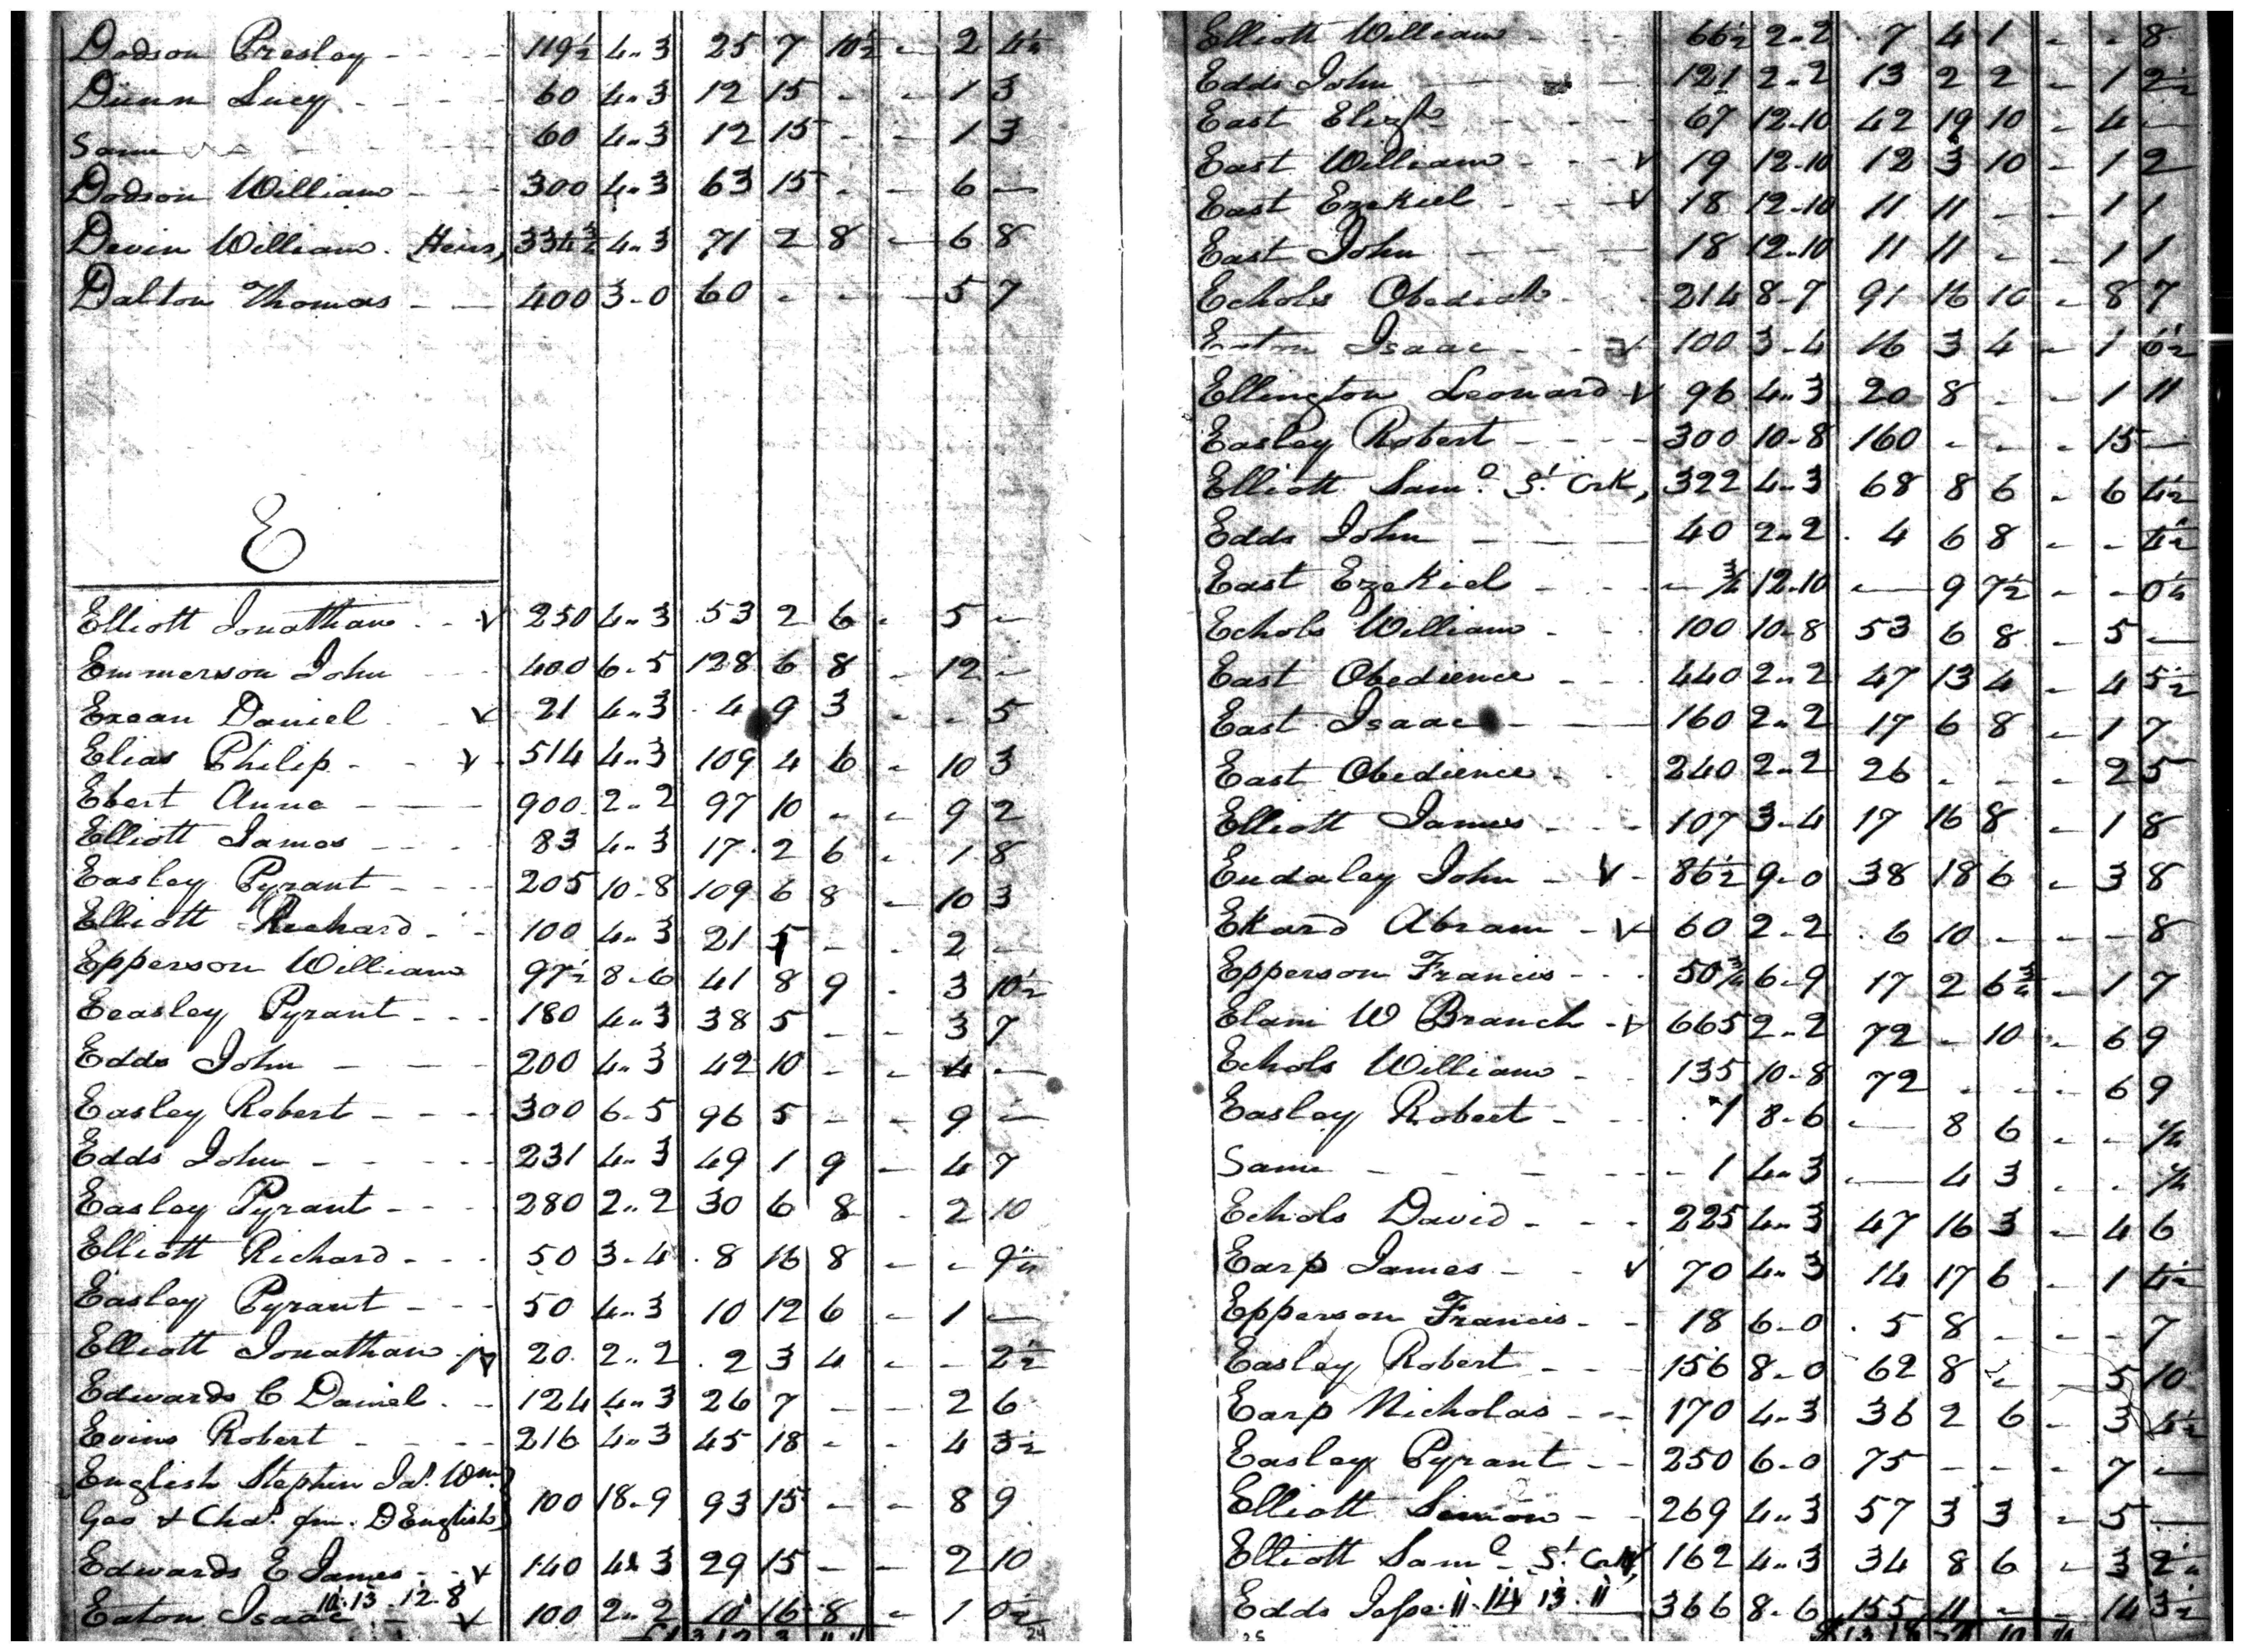 Dodson Presley - - - - 119½ 4..3 25 7 10½ - 2 4½
Dunn Lucy - - - - 60 4..3 12 15 - - 1 3
Same - - - - 60 4..3 12 15 - - 1 3
Dodson William - - - 300 4..3 63 15 - - 6 —
Devin William. (Heirs) 334¾ 4..3 71 2 8 - 6 8
Dalton Thomas - — 400 3-0 60 - - - 5 7
E
Elliott Jonathan - - v 250 4..3 53 2 6 - 5 -
Emmerson John - - - 400 6-5 128 6 8 - 12 -
Exean Daniel - v 21 4..3 4 9 3 - - 5
Elias Philip - - v 514 4..3 109 4 6 - 10 3
Ebert Anna - — - 900 2-2 97 10 - - 9 2
Elliott James - - - 83 4..3 17 2 6 - 1 8
Easley Pyrant - - - 205 10-8 109 6 8 - 10 3
Elliott Richard - - 100 4..3 21 5 - - 2 -
Epperson William 97½ 8-6 41 8 9 - 3 10½
Eeasley Pyrant - - - 180 4..3 38 5 - - 3 7
Edds John - — - 200 4..3 42 10 - - 4 —
Easley Robert - - - 300 6-5 96 5 - - 9 —
Edds John - - - - 231 4..3 49 1 9 - 4 7
Easley Pyrant - - - 280 2..2 30 6 8 - 2 10
Elliott Richard - - - 50 3-4 8 16 8 - - 9½
Easley Pyrant - - - 50 4..3 10 12 6 - 1 —
Elliott Jonathan jr 20 2..2 2 3 4 - - 2½
Edwards C Daniel - - 124 4..3 26 7 - - 2 6
Evins Robert - - - - 216 4..3 45 18 - - 4 3½
English Stephen Jas. Wm.
Geo & Chas. fm. D English) 100 18-9 93 15 - - 8 9
Edwards E James - - v 140 4..3 29 15 - - 2 10
10.13.12.8
Eaton Isaac - v 100 2..2 10 16 8 - 1 0½
24
Elliott William - - - 66½ 2..2 7 4 1 - - 8
Edds John - — — 121 2..2 13 2 2 - 1 2½
East Elizh - - - - 67 12-10 42 19 10 - 4 —
East William - - - v 19 12-10 12 3 10 - 1 2
East Ezekiel - - - v 18 12-10 11 11 - - 1 1
East John - — — 18 12-10 11 11 - - 1 1
Echols Obediah - - 214 8-7 91 16 10 - 8 7
Eaton Isaac - - v 100 3-4 16 3 4 - 1 6½
Ellington Leonard v 96 4..3 20 8 - - 1 11
Easley Robert - - - - 300 10-8 160 - - - 15 —
Elliott Saml. St. Crk, 322 4..3 68 8 6 - 6 4½
Edds John — — — 40 2..2 4 6 8 - - 4½
East Ezekiel - - - — ¾ 12-10 — 9 7½ - - 0½
Echols William - - - 100 10-8 53 6 8 - 5 —
East Obedience - - - 440 2..2 47 13 4 - 4 5½
East Isaac - — 160 2..2 17 6 8 - 1 7
East Obedience - - 240 2..2 26 - - - 2 5
Elliott James - - - 107 3-4 17 16 8 - 1 8
Eudaley John - v - 86½ 9-0 38 18 6 - 3 8
Ekard Abram - v 60 2-2 6 10 - - - 8
Epperson Francis - - - 50¾ 6-9 17 2 6¾ - 1 7
Elam W Branch - v 665 2..2 72 - 10 - 6 9
Echols William - - 135 10-8 72 - - - 6 9
Easley Robert - - - 1 8-6 — 8 6 - - ½
Same - - - - - 1 4..3 — 4 3 - - ¼
Echols David - - - 225 4..3 47 16 3 - 4 6
Earp James - - v 70 4..3 14 17 6 - 1 4½
Epperson Francis - - 18 6-0 5 8 - - - 7
Easley Robert - - - 156 8-0 62 8 - - 5 10
Earp Nicholas - - - 170 4..3 36 2 6 - 3 4½
Easley Pyrant - - 250 6-0 75 - - - 7 —
Elliott Simon - - 269 4..3 57 3 3 - 5 —
Elliott Saml. St. Crk 162 4..3 34 8 6 - 3 2½
Edds Jesse 11.14 13.11 366 8-6 155 11 - - 14 3½
25